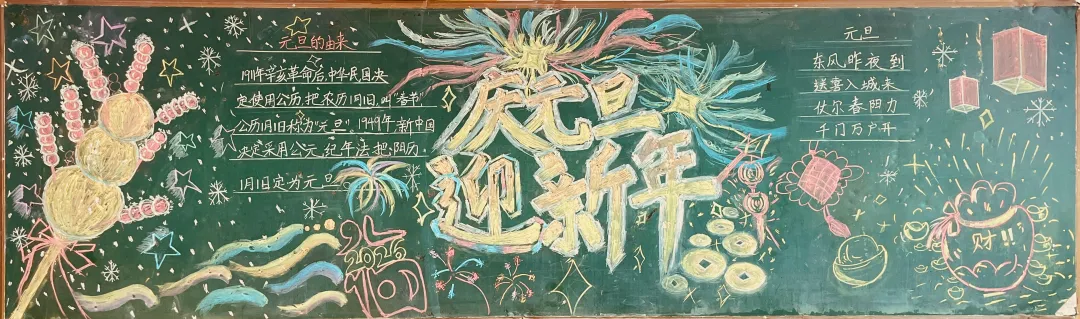 元旦的由来
1911年辛亥革命后,中华民国决
定使用公历,把农历1月1日,叫"春节"
公历1月1日称为"元旦"。1949年,新中国
决定采用公元,纪年法,把阳历
1月1日定为元旦
庆元旦
迎新年
元旦
东风昨夜到
送喜入城来
仗尔春阳力
千门万户开
财!!